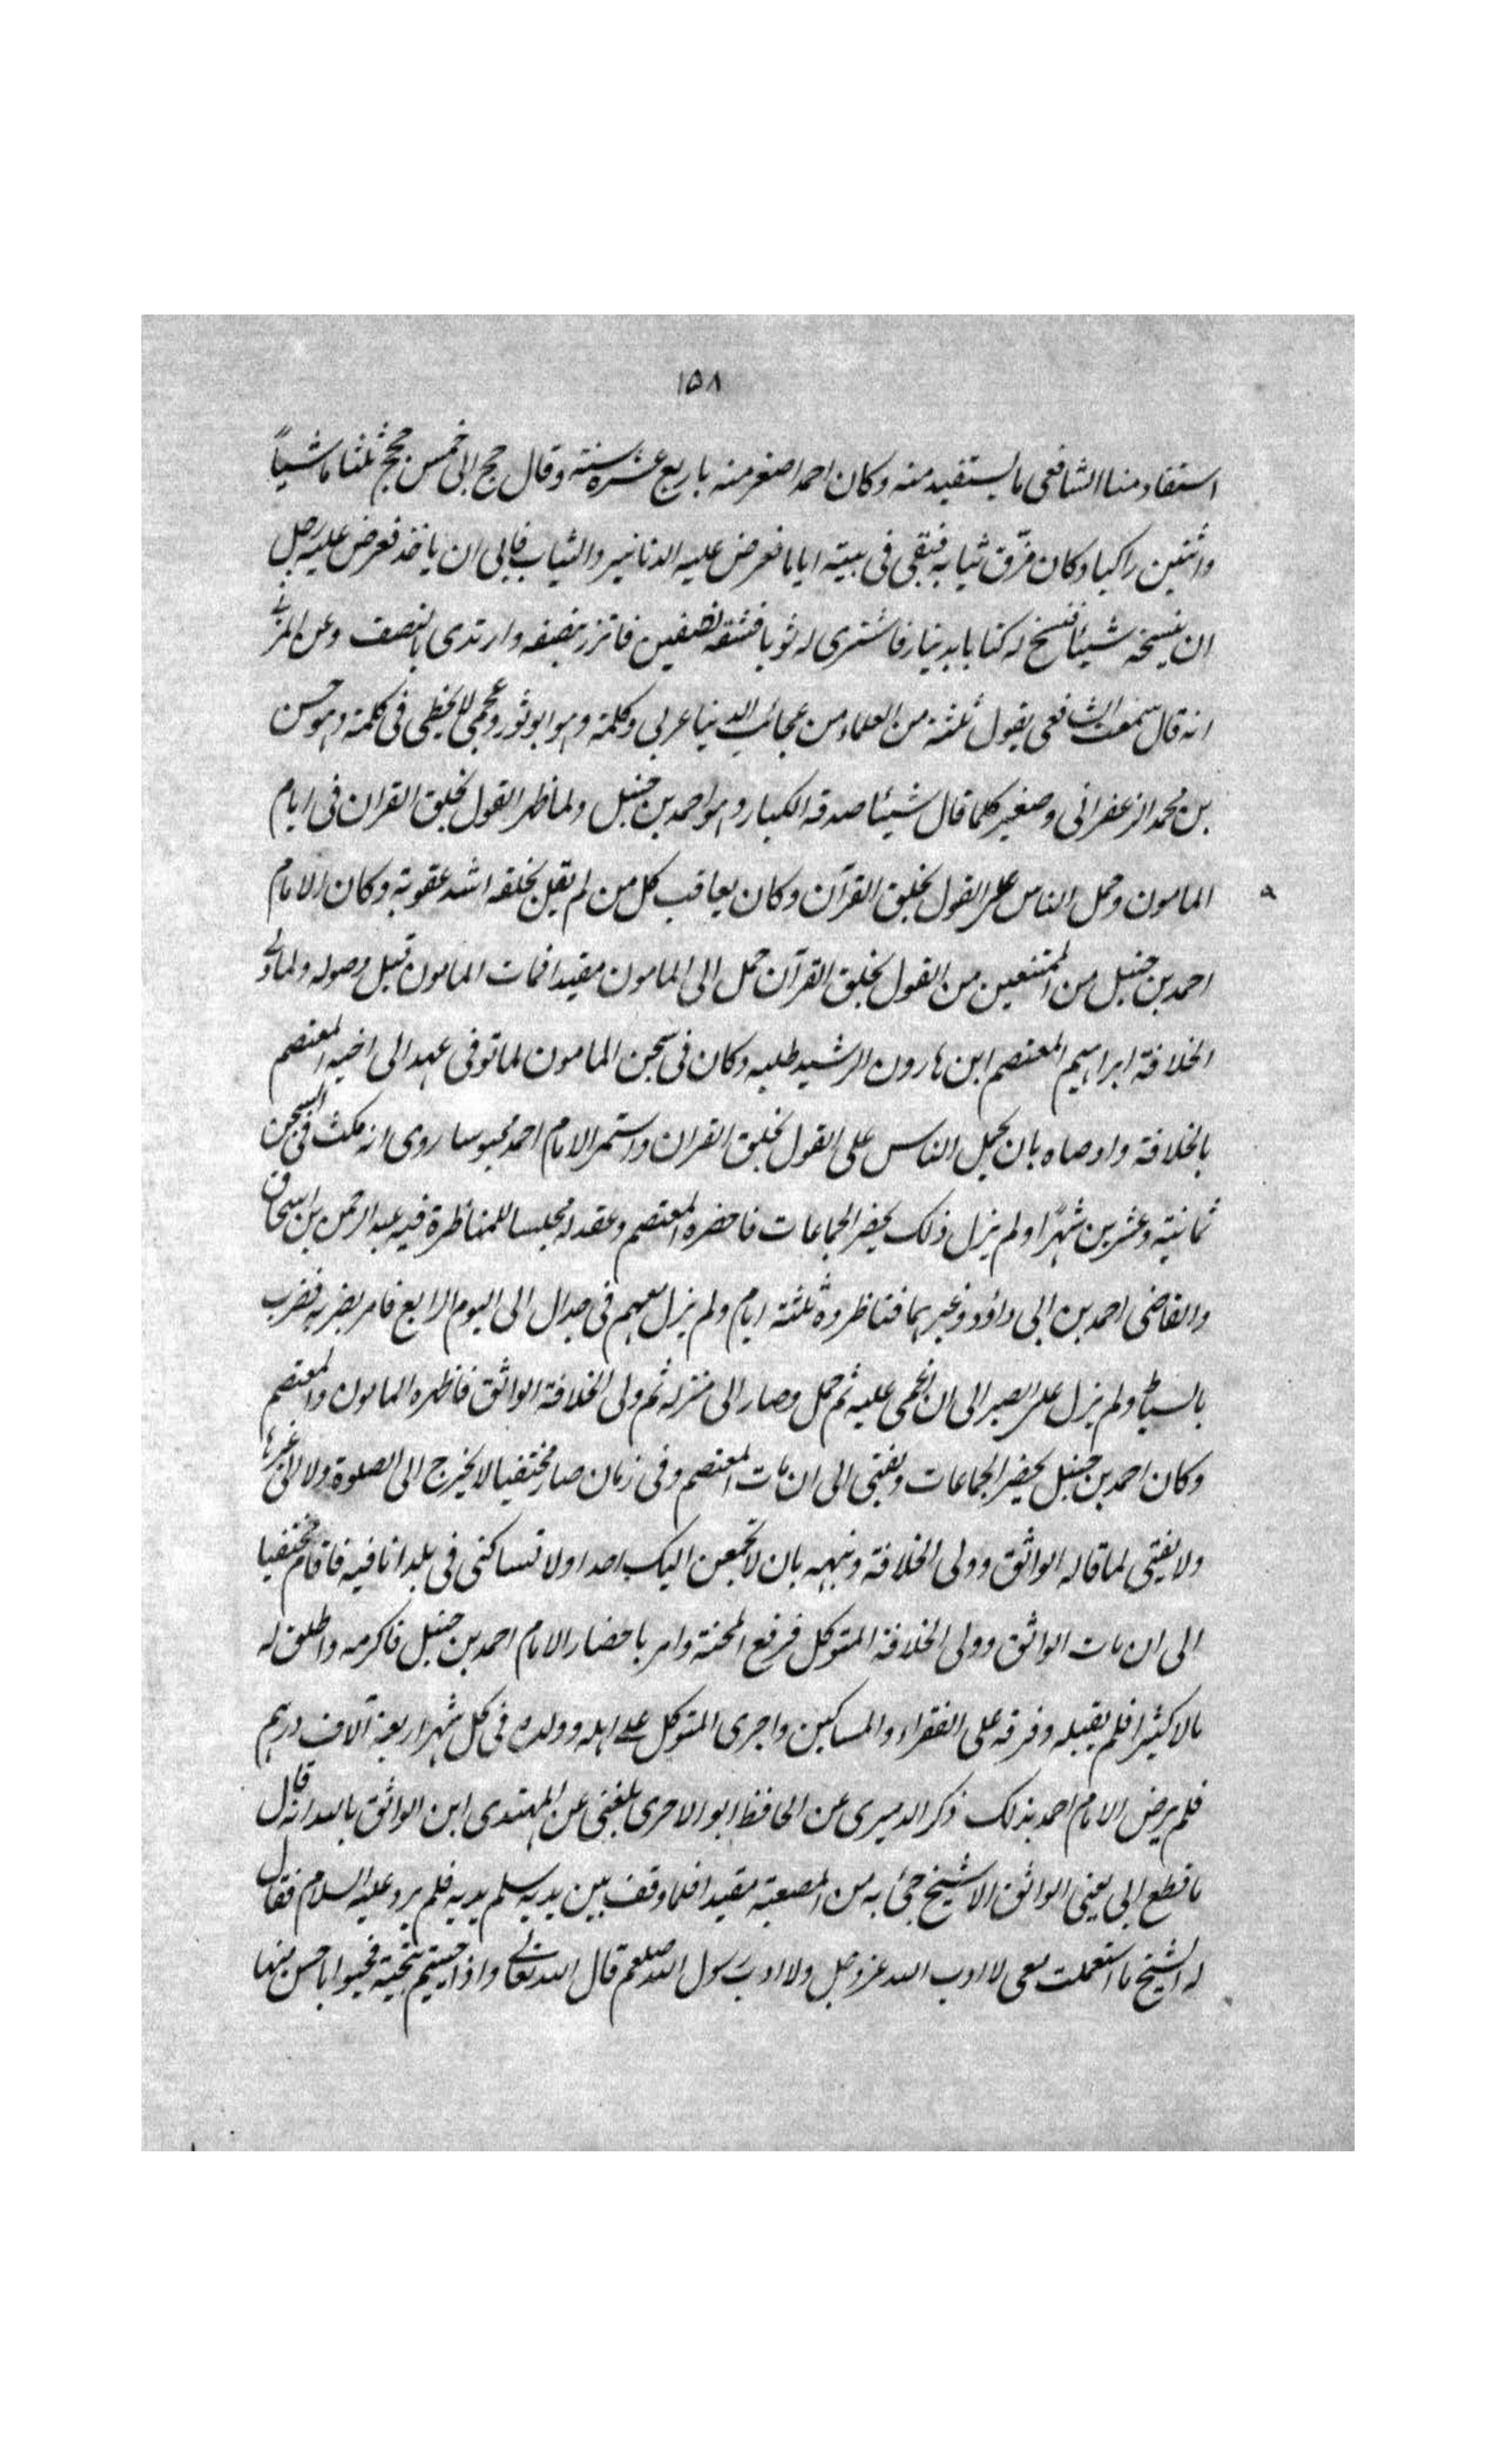 ١٥٨
استفاد منا الشافعى ما يستفيد منه وكان احمد اصغر منه باربع عشره سنته وقال حج ابى خمس حجج ثلثا ماشياً
واثنين راكبا وكان مزّق ثيابه فبقى فى بيته اياما فعرض عليه الدنانير والثياب فابى ان ياخذ فعرض عليه رجل
ان ينسخه شيئا فنسخ له كتابا بدينار فاشترى له ثوبا فشقه نصفين فاتزر بنصفه وارتدى بالنصف وعن المزنے
انه قال سمعت الشافعى يقول ثلثة من العلماء من عجائب الدنيا عربى وكلمة وهو ابو ثور وعجمى لا يخطى فى كلمة وهو حسن
بن محمد الزعفرانى وصغير كلما قال شيئا صدقه الكبار وهو احمد بن حنبل ولما ظهر القول بخلق القران فى ايام
المامون وحمل الناس على القول بخلق القرآن وكان يعاقب كل من لم يقل بخلقه اشد عقوبة وكان الامام
٩
احمد بن حنبل من الممتنعين من القول بخلق القرآن حمل الى المامون مقيدا فمات المامون قبل وصوله ولما ولے
الخلافة ابراهيم المعتصم ابن هارون الرشيد طلبه وكان فى سجن المامون لما توفى عهد الى اخيه المعتصم
بالخلافة واوصاه بان يحمل الناس على القول بخلق القران واستمر الامام احمد محبوسا روى انه مكث فى السجن
ثمانية وعشرين شهرًا ولم يزل ذلك يحضر الجماعات فاحضره المعتصم وعقد له مجلسا للمناظرة فيه عبد الرحمن بن اسحاق
والقاضى احمد بن ابى داؤد وغيرهما فتناظروه ثلثة ايام ولم يزل معهم فى جدال الى اليوم الرابع فامر بضربه فضرب
بالسياط ولم يزل على الصبر الى ان اغمى عليه ثم حمل وصار الى منزله ثم ولى الخلافة الواثق فاظهره المامون والمعتصم
وكان احمد بن حنبل يحضر الجماعات ويفتى الى ان مات المعتصم وفى زمان صار مختفيا لا يخرج الى الصلوة ولا الى غيرها
ولا يفتى لما قاله الواثق وولى الخلافة ونبهه بان لا تجمعن اليك احدا ولا تساكنى فى بلد انا فيه فاقام مختفيا
الى ان مات الواثق وولى الخلافة المتوكل فرفع المحنة وامر باحضار الامام احمد بن حنبل فاكرمه واطلق له
مالا كثيرا فلم يقبله وفرقه على الفقراء والمساكين واجرى المتوكل علے اهله وولده فى كل شهر اربعة آلاف درهم
فلم يرض الامام احمد بذلك ذكر الدميرى عن الحافظ ابو الاحرى بلغنى عن المهتدى ابن الواثق بالله انه قال
ما قطع ابى يعنى الواثق الا شيخ جئ به من المصعبة مقيدا فلما وقف بين يديه سلم يديه فلم يرد عليه السلام فقال
له الشيخ ما استعملت معى لا ادب الله عز وجل ولا ادب رسول الله صلعم قال الله تعالے واذا حييتم بتحية فحيوا باحسن منها